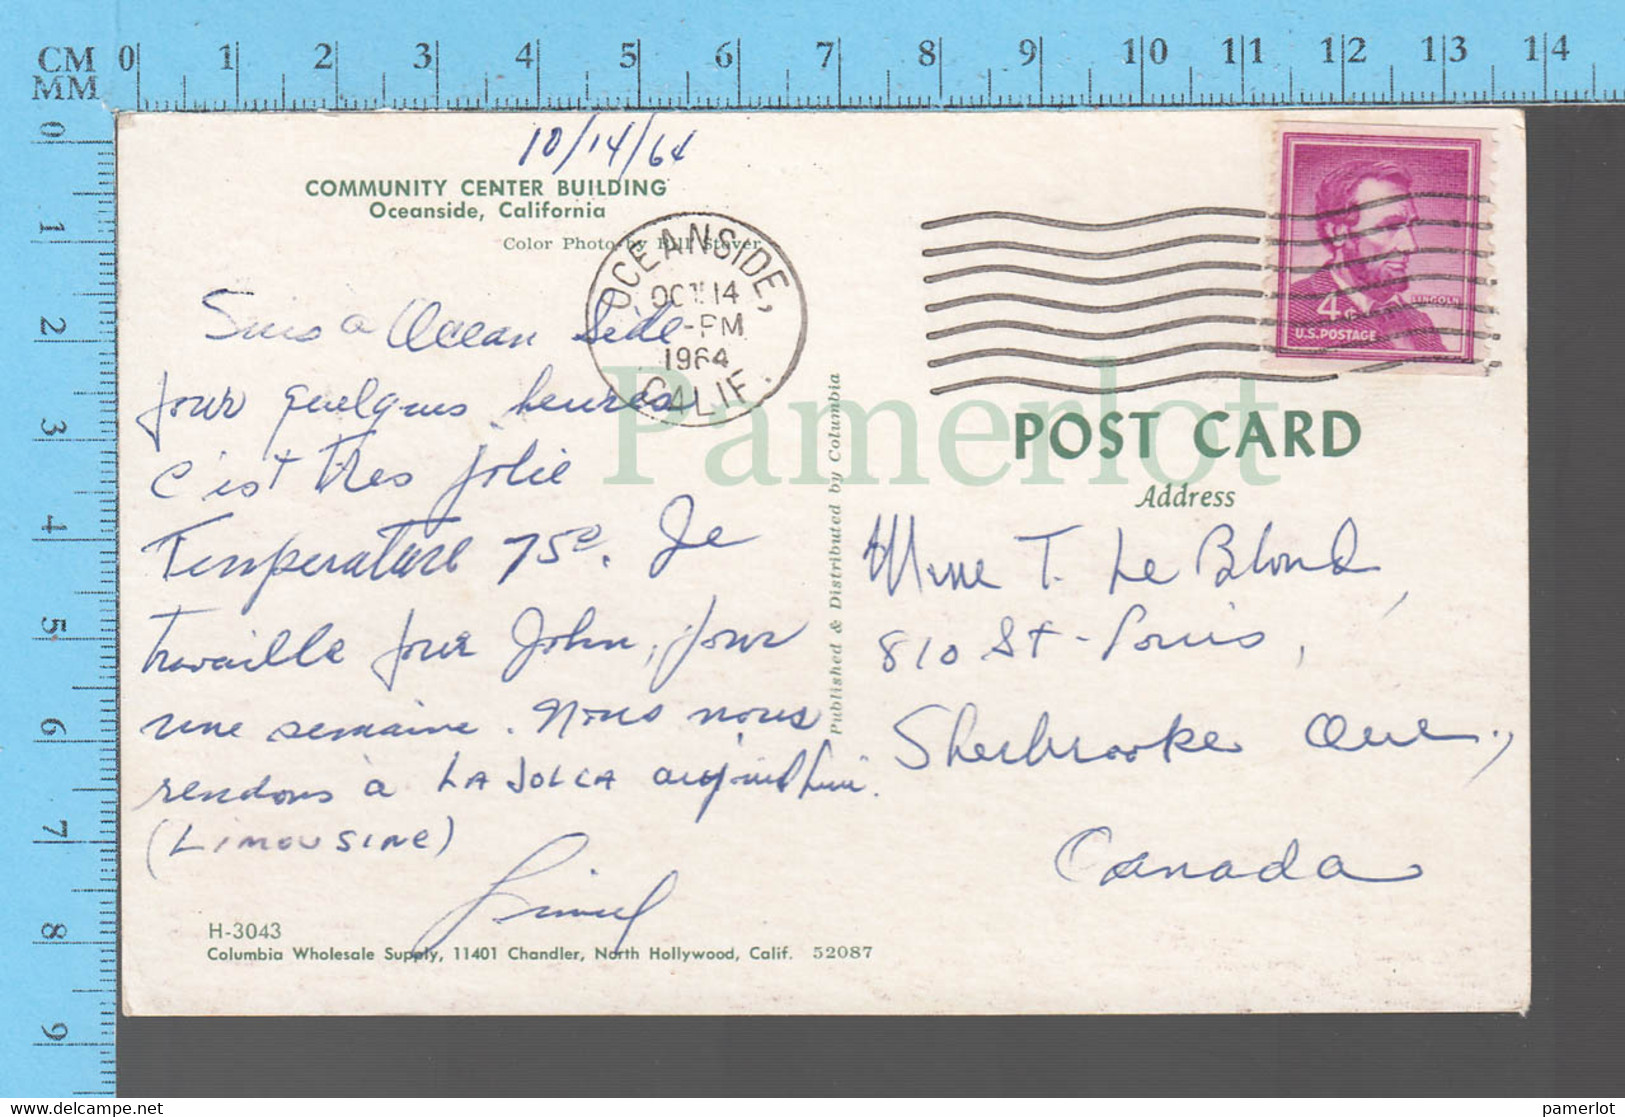 CM 0 1 2 3 4 5 6 7 8 9 10 11 12 13 14
MM
0
1
2
3
4
5
6
7
8
9
10/14/64
COMMUNITY CENTER BUILDING
Oceanside, California
Color Photo by Bill Stover
OCEANSIDE,
OCT 14
-PM
1964
CALIF.
4¢
LINCOLN
U.S. POSTAGE
Suis a Ocean Side
pour quelques heures
c'est tres jolie
Temperature 75°. Je
travaille pour John, pour
une semaine. Nous nous
rendons à LA JOLLA aujourd'hui.
(LIMOUSINE)
H-3043
Columbia Wholesale Supply, 11401 Chandler, North Hollywood, Calif. 52087
Published & Distributed by Columbia
POST CARD
Address
Mme T. Le Blond,
810 St-Louis,
Sherbrooke Que.,
Canada
Pamerlot
pamerlot.delcampe.net
pamerlot